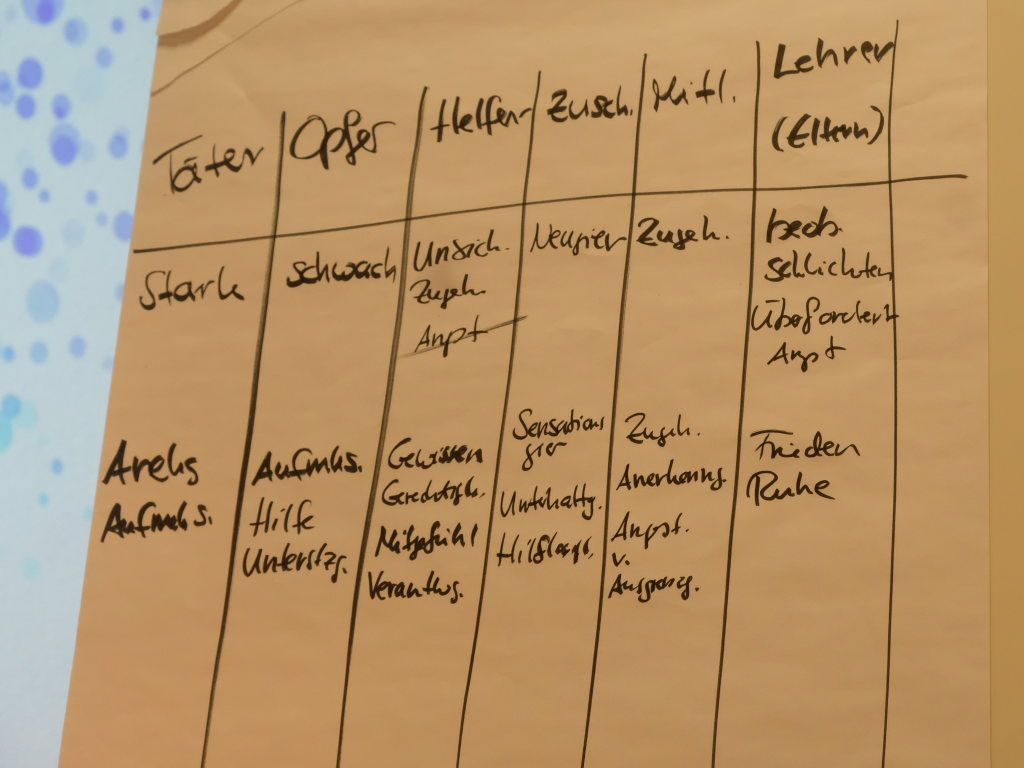 Täter Opfer Helfer Zusch. Mitl. Lehrer
(Eltern)
Stark schwach Unsich. Neugier Zugeh. beob.
Zugeh. schlichten
Angst Überfordert
Angst
Sensations
gier
Anerkg Aufmks. Gewissen Zugeh. Frieden
Aufmks. Hilfe Gerechtigk. Unterhaltg. Anerkennng. Ruhe
Unterstzg. Mitgefühl Angst.
Verantwg. v.
Ausgrenzg.